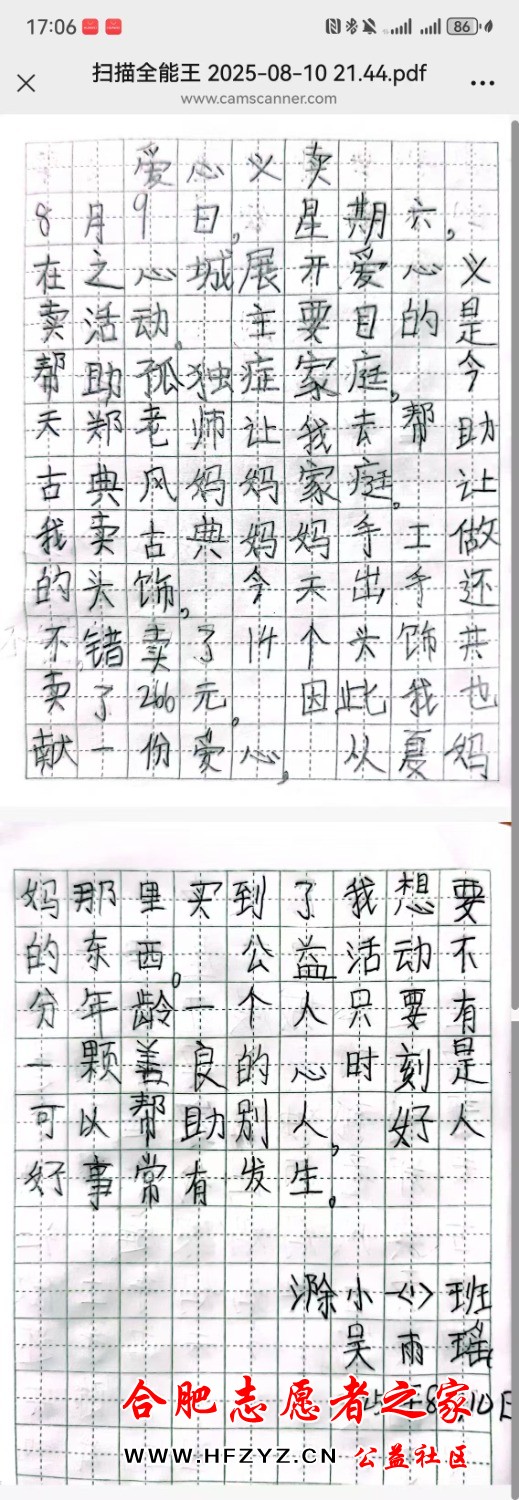 17:06
86
扫描全能王 2025-08-10 21.44.pdf
www.camscanner.com
爱心义卖
8月9日，星期六，
在之心城展开爱心义
卖活动。主要目的是
帮助孤独症家庭。今
天郑老师让我去帮助
古典风妈妈家庭。让
我卖古典妈妈手工做
的头饰，今天出手还
不错卖了14个头饰共
卖了266元。因此我也
献一份爱心，从夏妈
妈那里买到了我想要
的东西。公益活动不
分年龄一个人只要有
一颗善良的心时刻是
可以帮助别人，好人
好事常有发生。
滁小<1>班
吴雨瑶
合肥志愿者之家
WWW.HFZYZ.CN 公益社区